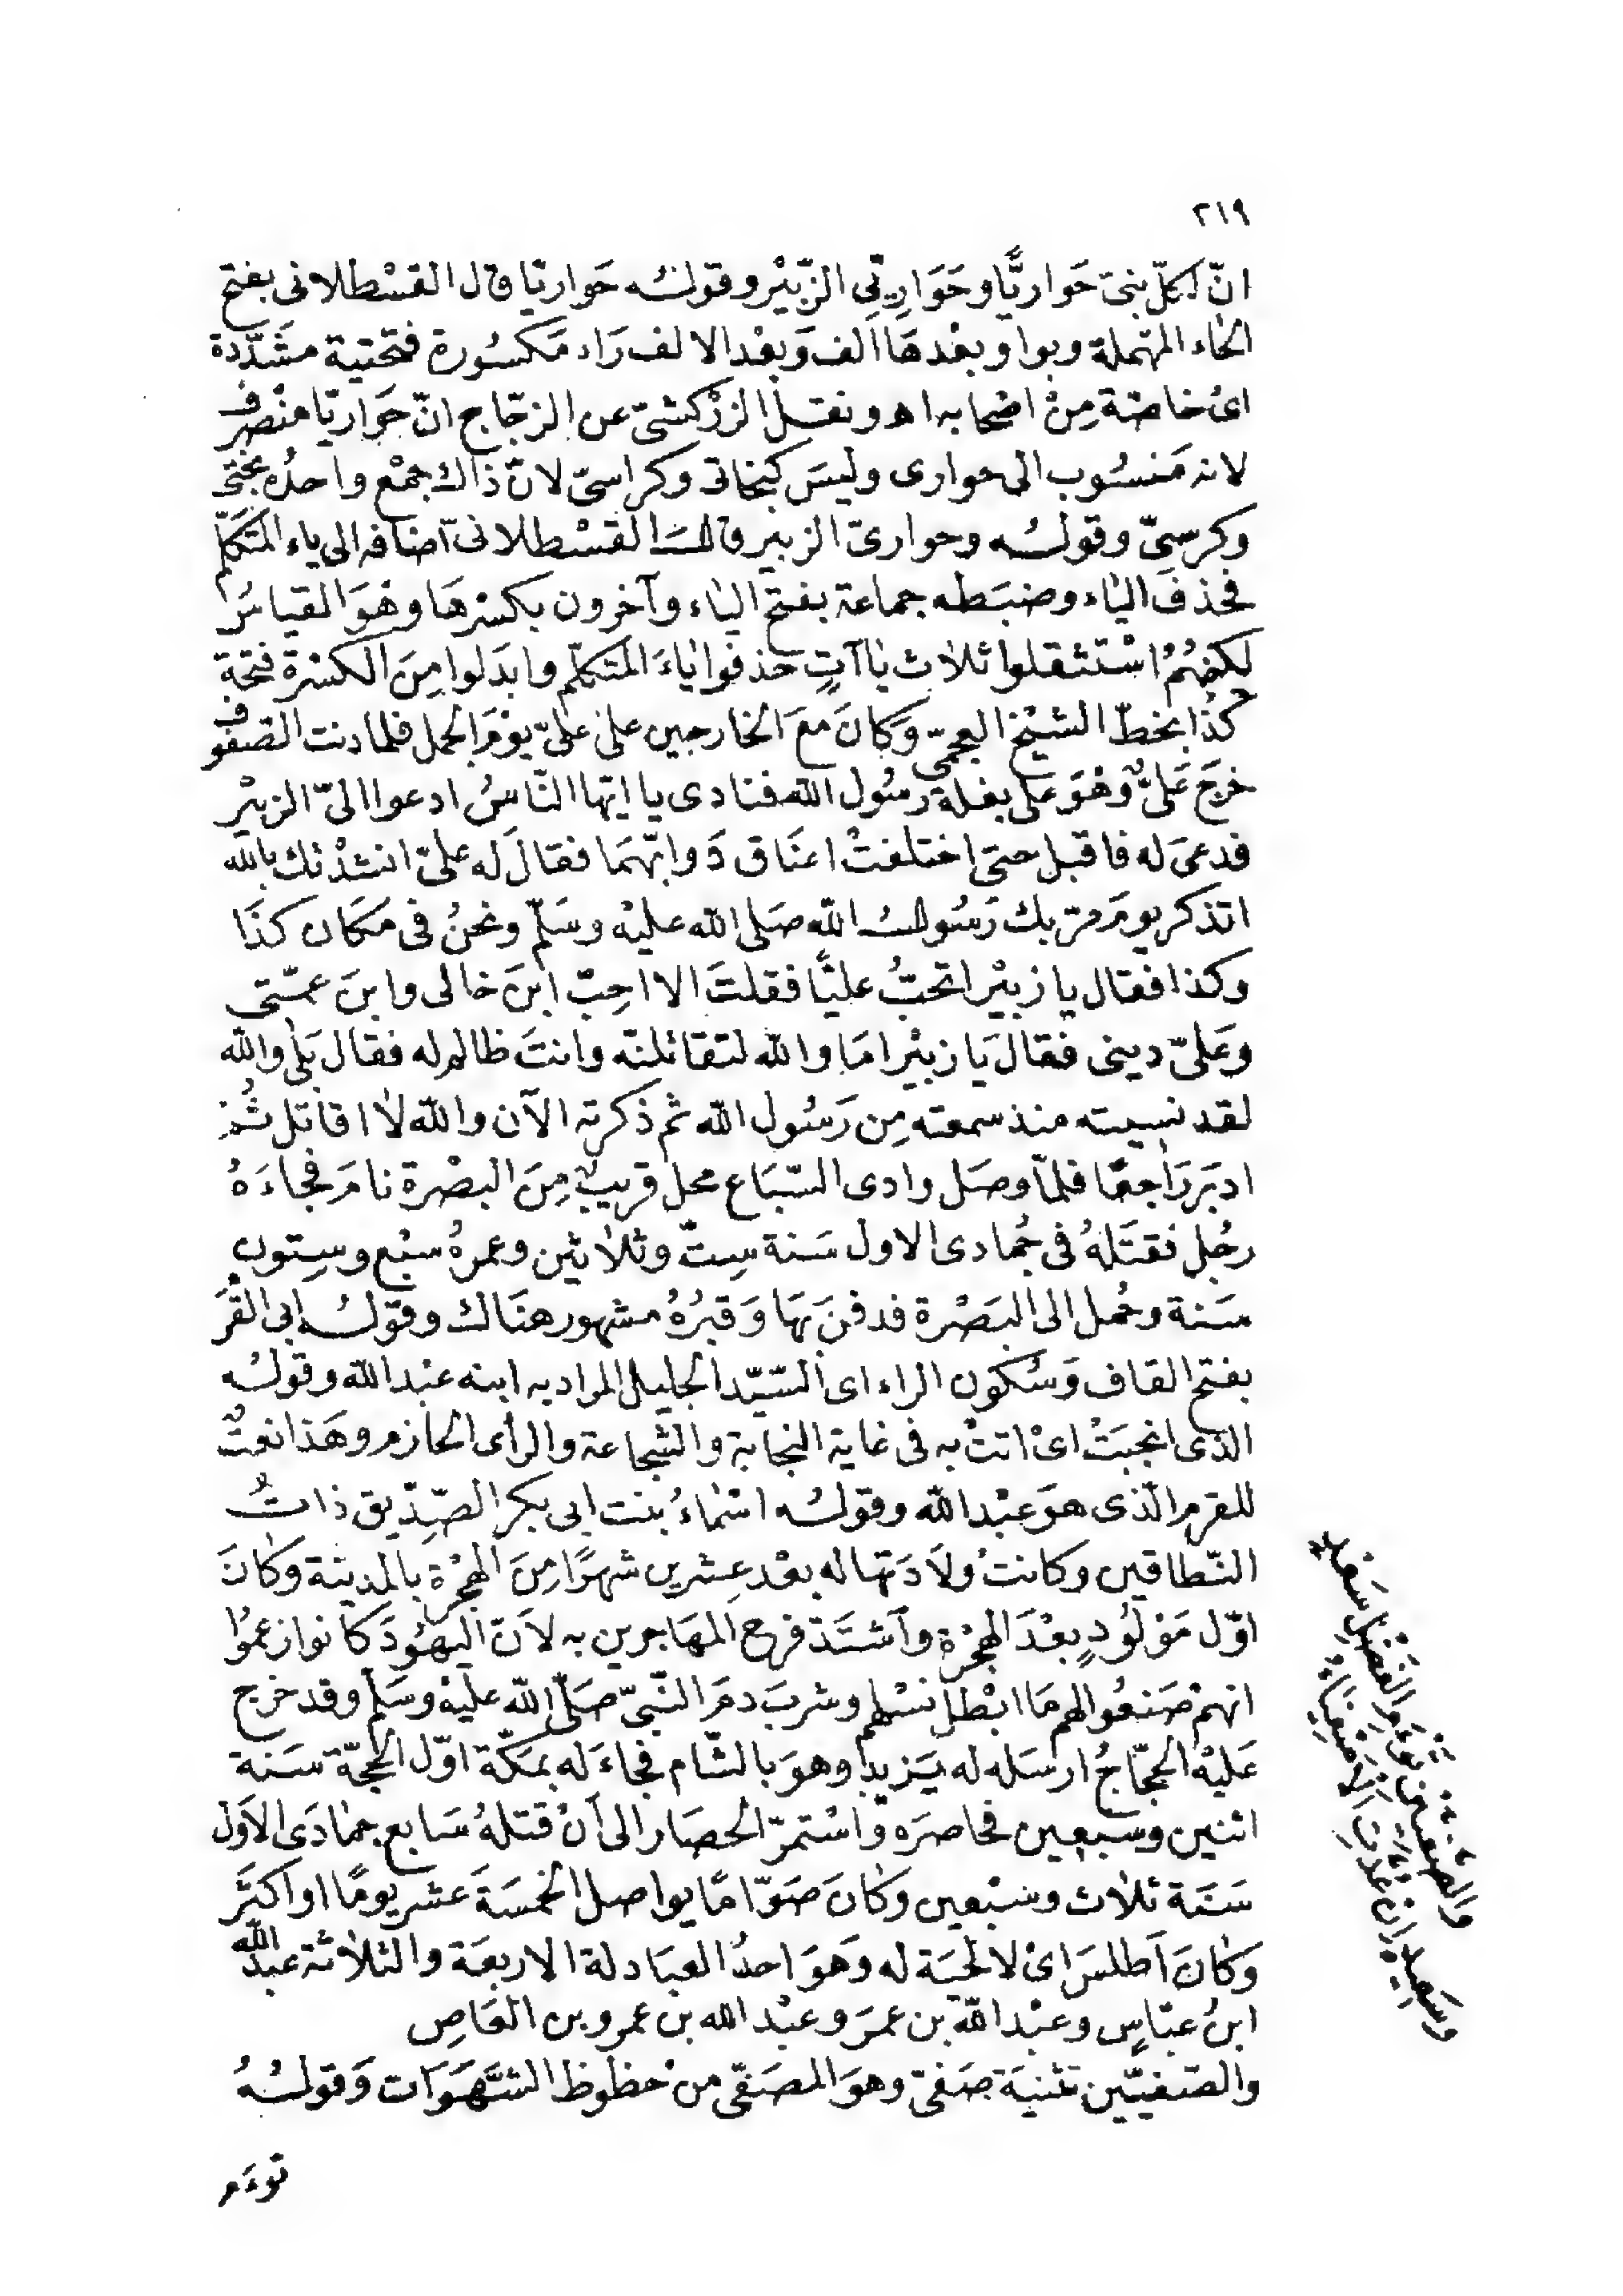 ٢١٩
انّ لكلّ نبىّ حَواريًّا وحَوَارِيّى الزّبيْر وقوله حَواريّا قال القسْطلانى بفتح
الحاء المهملة وبواو وبعْدهَا الف وَبعْد الالف رَاء مَكسُورة فتحتية مشَدّدة
اىْ خاصّة مِنْ اصْحابه اه ونقل الزرْكشىّ عن الزجّاج انّ حَواريّا منْصرف
لانه مَنسُوب الى حوارى وليسَ كبخاتى وكراسىّ لانّ ذاك جمْع واحدُه بختى
وكرسىّ وقولُه وحوارىّ الزبير قال القسْطلانى اضافه الى ياء المتكلّم
فحذفَ الياء وضبَطه جماعة بفتح الياء وآخرون بكسْرهَا وهْوَ القياسُ
لكنهُمْ اسْتثقلوا ثلاث ياآتٍ حذفوا ياءَ المتكلّم وابدَلوا مِنَ الكسْرة فتحة
كذا بخطّ الشيْخ العجمى وَكانَ معَ الخارجين على علىّ يوْمَ الجمل فلما دنت الصّفوف
خرجَ عَلىٌّ وهْوَ على بغلة رسُول الله فنادى يا ايّها النّاسُ ادعوا الىّ الزبيْر
فدعىَ له فاقبل حتى اختلفتْ اعنَاق دَوابّهمَا فقالَ له علىّ انشدْتك بالله
اتذكر يومَ مرّ بك رَسُول الله صَلى الله عليْه وسَلّم ونحنُ فى مَكَان كذَا
وكذا فقال يا زبيْر اتحبُّ عليًّا فقلتَ الا احِبّ ابنَ خالى وابنَ عمّتى
وعَلىّ دينى فقالَ يَا زبيْر امَا والله لتقاتلنّه وانتَ ظالم له فقال بَلى والله
لقد نسيته منذ سمعته مِن رَسُول الله ثم ذكرته الآن والله لا اقاتل ثُمّ
ادبَرَ رَاجعًا فلمّا وصَل وادى السّبَاع محل قريبٌ مِنَ البصْرة نامَ فجاءَهُ
رجُل فقتَلهُ فى جُمادى الاول سَنة سِتّ وثلاثين وعمرهُ سبْع وستون
سَنة وحُمل الى البَصْرة فدفنَ بهَا وَقبرُهُ مشهور هنَاك وقولُه ابى القَرْمَ
بفتح القاف وَسُكون الراء اى السّيّد الجليل المراد به ابنه عبْد الله وقولُه
الذى انجبَتْ اىْ اتتْ به فى غاية النجابة والشّجاعة والرأى الحازم وهَذا نعتٌ
للقرم الّذى هوَ عبْد الله وقولُه اسْماءُ بنت ابى بكر الصّدّيق ذاتُ
النّطاقين وكانتْ ولاَدَتها له بعْد عِشرين شهرًا مِنَ الهجْرة بالمدينة وَكانَ
اوّل مَوْلُودٍ بعْدَ الهجْرة وَاشتَدّ فرح المهَاجرين به لاَنّ اليهُودَ كانوا زعمُوا
انهمْ صَنعُوا لهم مَا ابْطلَ نسْلهم وشربَ دمَ النّبىّ صَلّى الله عليْه وسَلم وقد خرج
عَليْه الحجّاجُ ارسَله له يَزيد وهوَ بالشّام فجاءَ له بمكّة اوّل الحجّة سَنة
اثنين وسَبعين فحاصرَه وَاسْتمرّ الحصَار الى اَنْ قتلهُ سَابع جمادَى الاَوّل
سَنة ثلاث وسَبْعين وَكانَ صَوّامًا يواصل الخمسَةَ عَشر يومًا او اكثَر
وَكانَ اَطلسَ اىْ لا لحيَة له وَهوَ احدُ العبَادلة الاربعَة والثلاثة عبد الله
ابنُ عبّاسٍ وعبْد الله بن عمرَ وعبْد الله بن عمرو بن العَاصِ
والصّفيّين تثنيَة صَفىّ وهوَ المصَفّى منْ حظوظ الشّهَوَات وَقولُهُ
توءَم
والصّفيّين توءَمِ الفَضْل سَعْدٍ
وسَعِيدٍ اِنْ عُدّتِ الاَصْفِيَاءُ